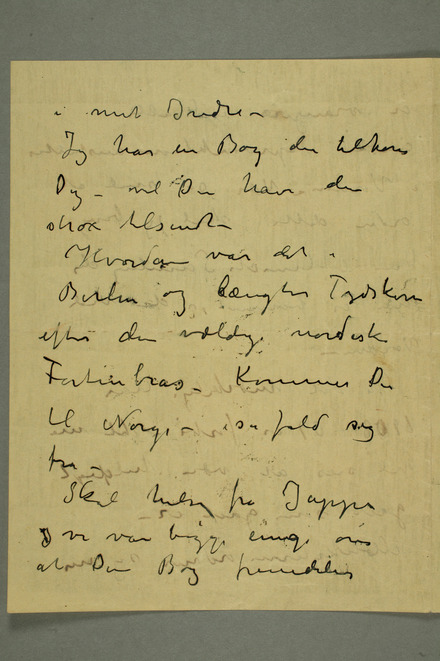 i mit Indre –
Jeg har en Bog der tilhører
Dig – vil Du have den
strax tilsendt –
Hvordan var det i
Berlin og længter Tydskern
efter den vældige nordiske
Fortinbras – Kommer Du
til Norge – i saa fald sig
fra –
Skal hilse fra Jappe
vi var begge enige om
at Din Bog fremdeles